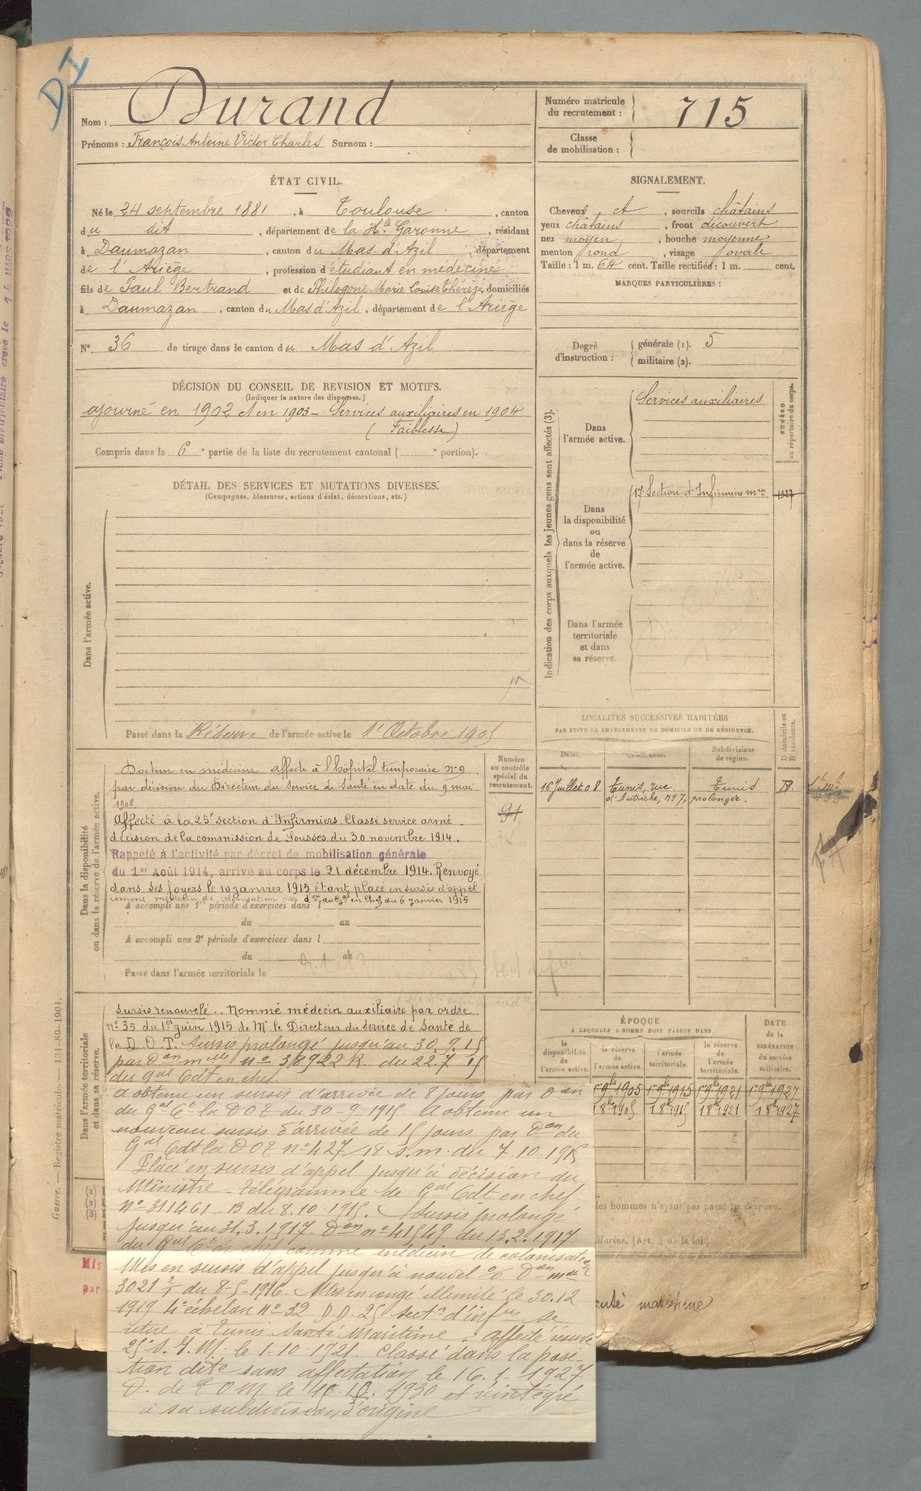 DI
Nom : Durand
Prénoms : François Antoine Victor Charles Surnom :
Numéro matricule du recrutement : 715
Classe de mobilisation :
ÉTAT CIVIL.
Né le 24 septembre 1881, à Toulouse, canton
du dit, département de la Hte Garonne, résidant
à Daumazan, canton du Mas d'Azil, département
de l'Ariège, profession d'étudiant en médecine
fils de Paul Bertrand et de Philogone Marie Louise Thérèze, domiciliés
à Daumazan, canton du Mas d'Azil, département de l'Ariège
N° 36 de tirage dans le canton du Mas d'Azil
DÉCISION DU CONSEIL DE REVISION ET MOTIFS.
(Indiquer la nature des dispenses.)
ajourné en 1902 & en 1903 - Services auxiliaires en 1904
(Faiblesse)
Compris dans la 6e partie de la liste du recrutement cantonal ( e portion).
SIGNALEMENT.
Cheveux et, sourcils châtains
yeux châtains, front découvert
nez moyen, bouche moyenne
menton rond, visage ovale
Taille : 1 m. 64 cent. Taille rectifiée : 1 m. cent.
MARQUES PARTICULIÈRES :
Degré d'instruction : générale (1). 5
militaire (2).
DÉTAIL DES SERVICES ET MUTATIONS DIVERSES.
(Campagnes, blessures, actions d'éclat, décorations, etc.)
Dans l'armée active.
Passé dans la Réserve de l'armée active le 1er Octobre 1905
Indication des corps auxquels les jeunes gens sont affectés (3).
NUMÉRO au répertoire du corps.
Dans l'armée active. Services auxiliaires
Dans la disponibilité ou dans la réserve de l'armée active. Section d'Infirmiers mres
Dans l'armée territoriale et dans sa réserve.
LOCALITÉS SUCCESSIVES HABITÉES
PAR SUITE DE CHANGEMENTS DE DOMICILE OU DE RÉSIDENCE.
Dates. Communes. Subdivisions de région. D domicile ou R résidence.
16 Juillet 08 Tunis, rue Tunis
d'Autriche, n° 7, prolongée.
Dans la disponibilité ou dans la réserve de l'armée active.
Numéro au contrôle spécial du recrutement.
Docteur en médecine affecté à l'hôpital temporaire n° 9
par décision du Directeur du Service de Santé en date du 9 mai
1908.
Affecté à la 25e section d'Infirmiers. Classé service armé
décision de la commission de Sousses du 30 novembre 1914.
Rappelé à l'activité par décret de mobilisation générale
du 1er Août 1914, arrivé au corps le 21 décembre 1914. Renvoyé
dans ses foyers le 10 janvier 1915 étant placé en sursis d'appel
comme médecin de colonisation en Chef du 6 janvier 1915
A accompli une 1re période d'exercices dans l
du au
A accompli une 2e période d'exercices dans l
du au
Passé dans l'armée territoriale le
Dans l'armée territoriale et dans sa réserve.
Sursis renouvelé. Nommé médecin auxiliaire par ordre
n° 35 du 1er Juin 1915 de Mr le Directeur du service de Santé de
la D.O.T. Sursis prolongé jusqu'au 30.9.15
par Don mlle n° 32922 R. du 22.7 15
du Gal Cdt en chef
a obtenu un sursis d'arrivée de 8 jours par Don
du Gal la DOT du 30.9.1915. A obtenu un
nouveau sursis d'arrivée de 15 jours par Don du
Gal Cdt la DOT n° 427 S.m. du 7.10.1915
Placé en sursis d'appel jusqu'à décision du
Ministre - télégramme de Gal Cdt en chef
n° 311461-B du 8.10 1915. Sursis prolongé
jusqu'au 31.3.1917 Don n° 41549 du 13.2.1917
du Gal en chef comme médecin de colonisation
Mis en sursis d'appel jusqu'à nouvel Don
3021 du 8-5-1916. Mis en congé illimité le 30.12
1919 4e échelon n° 32 D.D. 25e sectn d'infers se
retire à Tunis Santé Maritime. affecté
25e S.I.M. le 1.10 1921. Classé dans la posi-
tion dite sans affectation le 16. 1927
D. de T.O.M. le 10.10.1930 et réintégré
à sa subdivision d'origine
ÉPOQUE
À LAQUELLE L'HOMME DOIT PASSER DANS
la disponibilité de l'armée active. la réserve de l'armée active. l'armée territoriale. la réserve de l'armée territoriale. DATE de la LIBÉRATION du service militaire.
1 9bre 1905 1 9bre 1915 1 9bre 1921 1 9bre 1927
1 8bre 1905 1 8bre 1915 1 8bre 1921 1 8bre 1927
maritime
Guerre. — Registre matricule. — 131-89-1901.